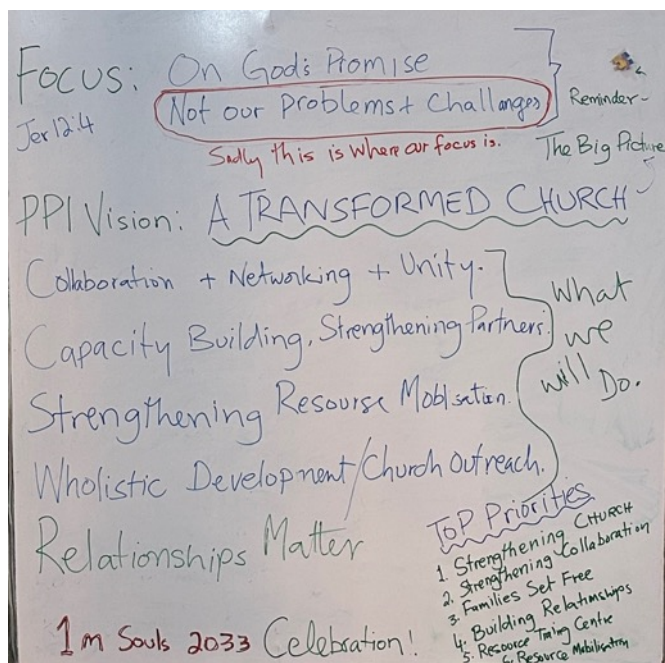 FOCUS: On God's Promise
Jer 12:4
Not our problems + Challanges
Reminder -
Sadly this is where our focus is.
The Big Picture
PPI Vision: A TRANSFORMED CHURCH
Collaboration + Networking + Unity.
Capacity Building, Strengthening Partners.
Strengthening Resourse Moblisation.
Wholistic Development/Church Outreach.
What
we
will Do.
Relationships Matter
ToP Priorities
1. Strengthening CHURCH
2. Strengthening Collaboration
3. Families Set Free
4. Building Relationships
5. Resource Traing Centre
6. Resource Mobilisation
1m Souls 2033 Celebration!